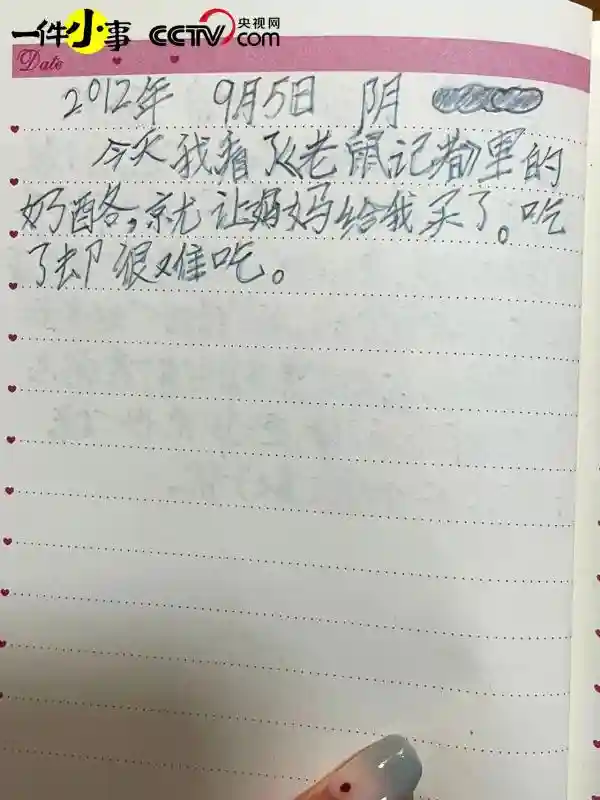 一件小事 CCTV 央视网 com
Date
2012年 9月5日 阴
今天我看了《老鼠记者》里的
奶酪,就让妈妈给我买了。吃
了却很难吃。